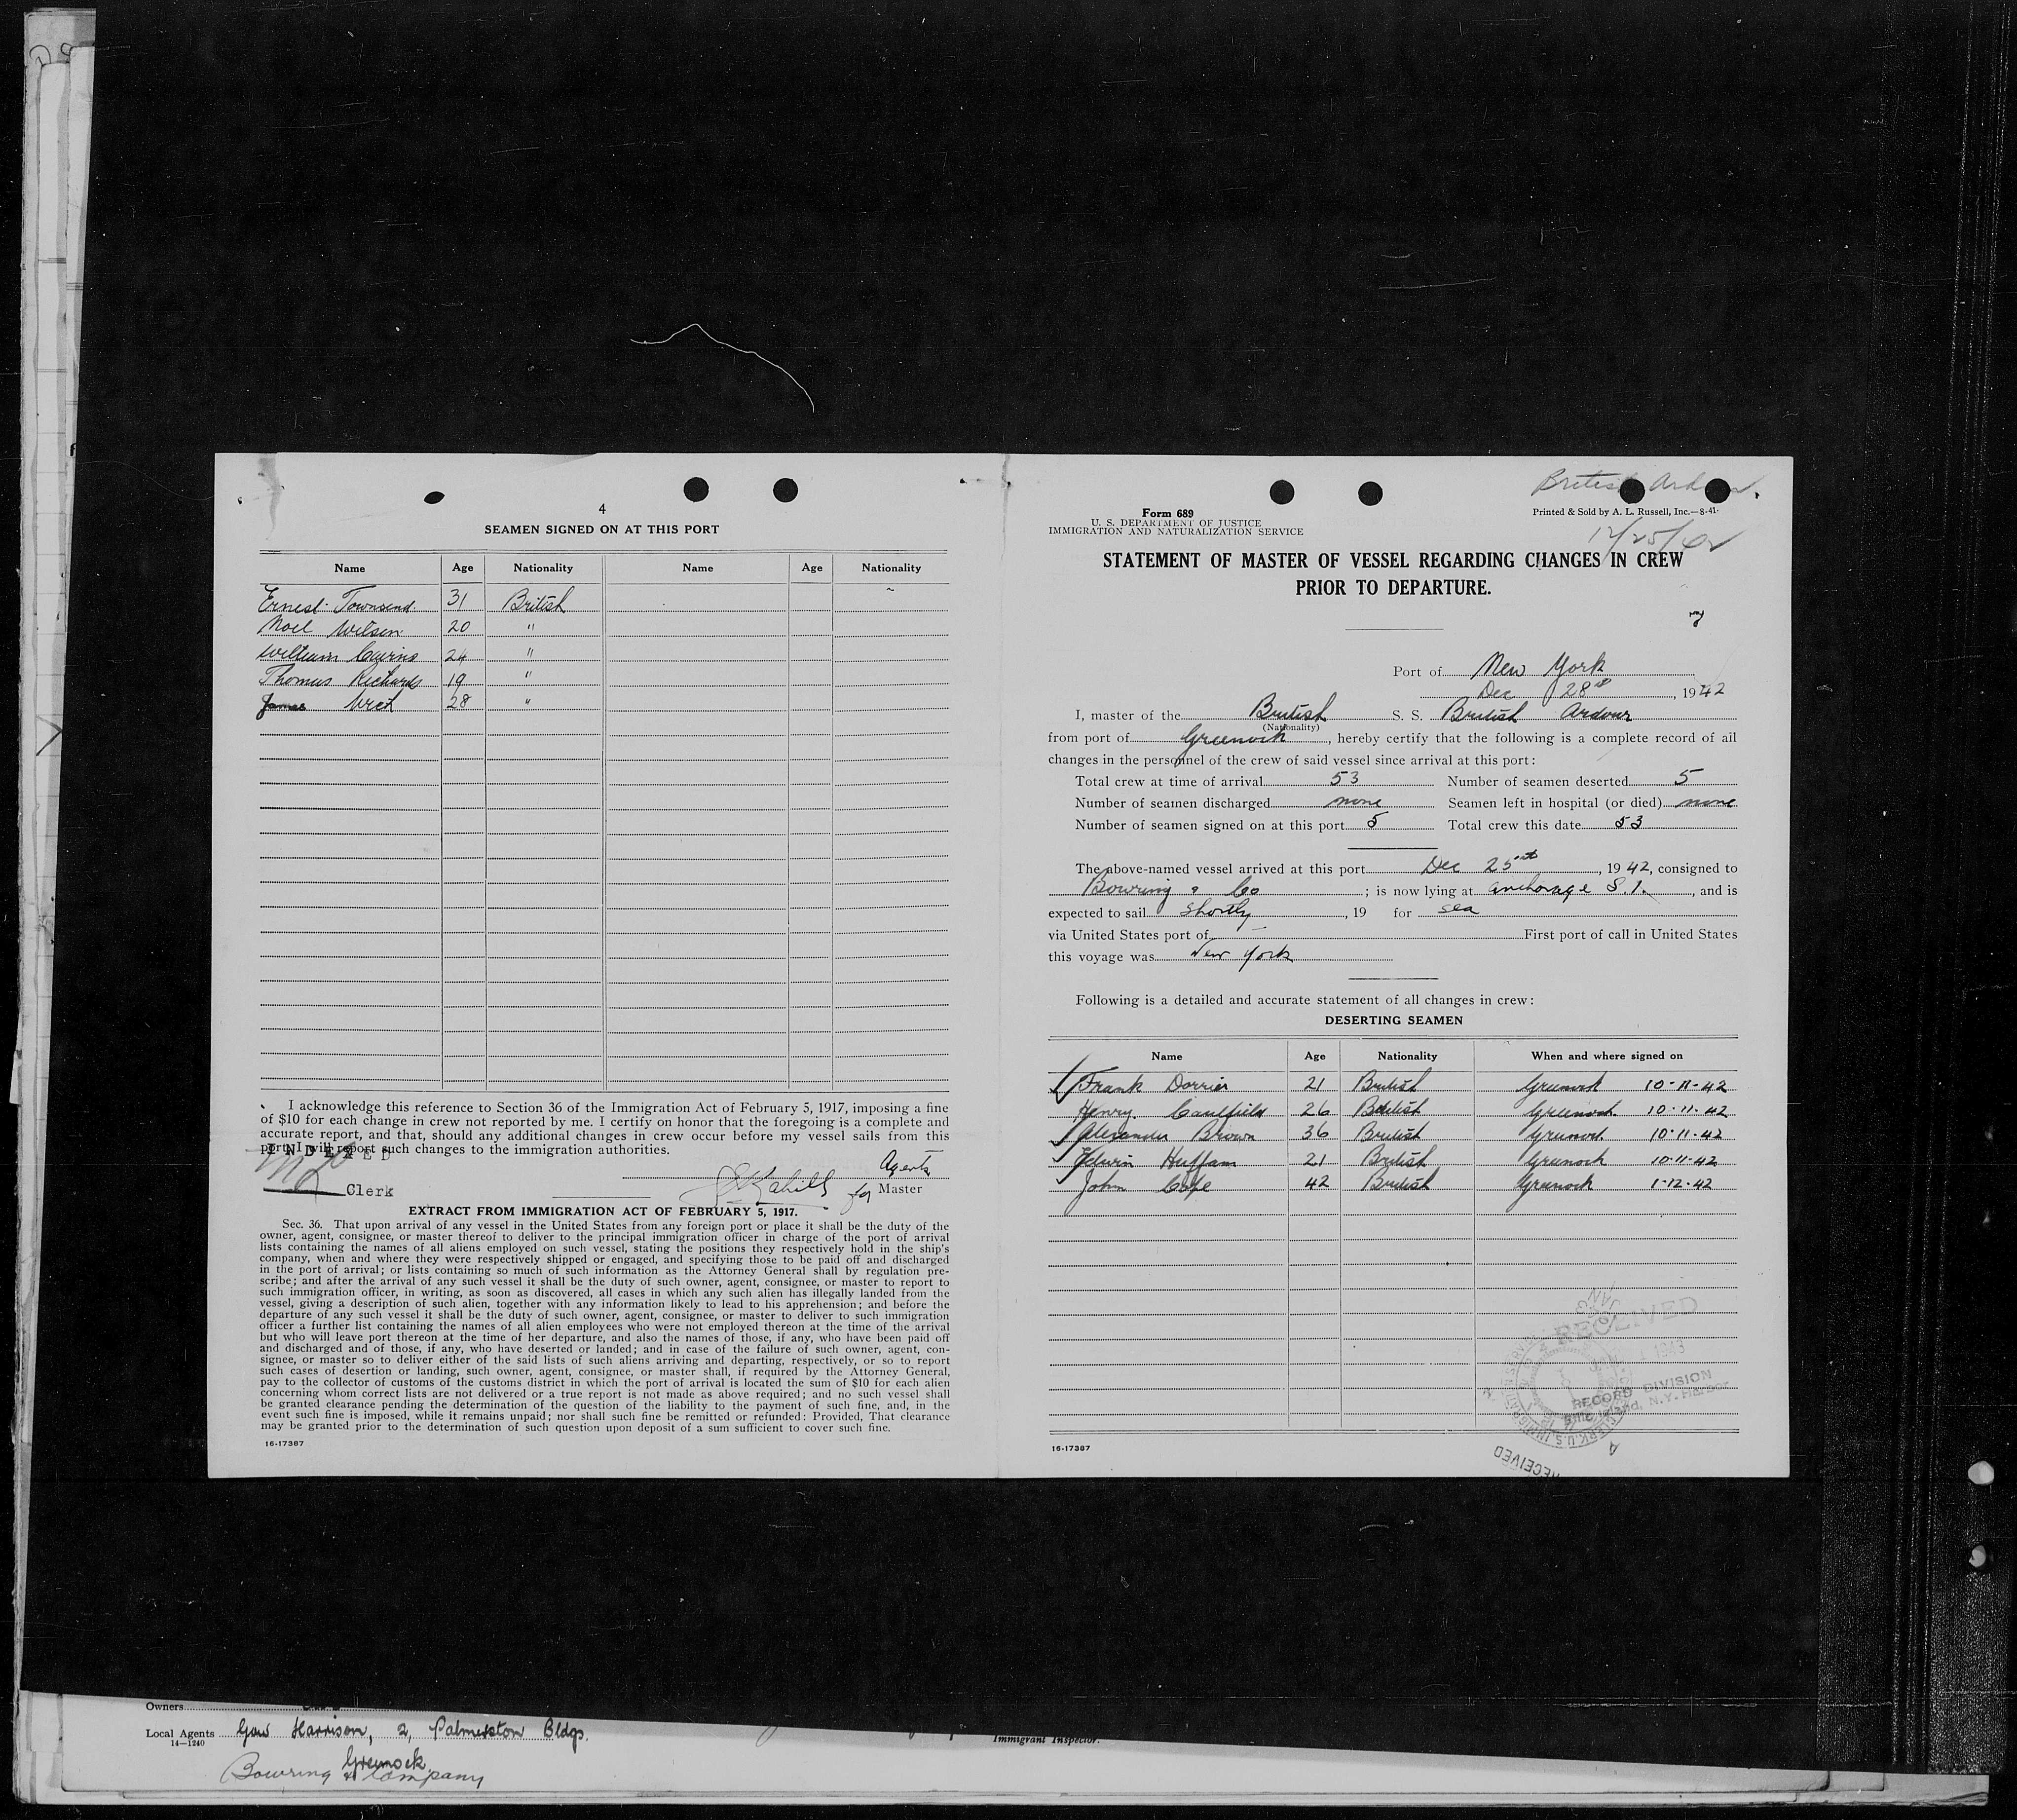 4
SEAMEN SIGNED ON AT THIS PORT
Name Age Nationality Name Age Nationality
Ernest Townsend 31 British
Noel Wilson 20 "
William Cairns 24 "
Thomas Richards 19 "
James 28 "
I acknowledge this reference to Section 36 of the Immigration Act of February 5, 1917, imposing a fine
of $10 for each change in crew not reported by me. I certify on honor that the foregoing is a complete and
accurate report, and that, should any additional changes in crew occur before my vessel sails from this
port, I will report such changes to the immigration authorities.
INDEXED
Agents
Clerk
for Master
EXTRACT FROM IMMIGRATION ACT OF FEBRUARY 5, 1917.
Sec. 36. That upon arrival of any vessel in the United States from any foreign port or place it shall be the duty of the
owner, agent, consignee, or master thereof to deliver to the principal immigration officer in charge of the port of arrival
lists containing the names of all aliens employed on such vessel, stating the positions they respectively hold in the ship's
company, when and where they were respectively shipped or engaged, and specifying those to be paid off and discharged
in the port of arrival; or lists containing so much of such information as the Attorney General shall by regulation pre-
scribe; and after the arrival of any such vessel it shall be the duty of such owner, agent, consignee, or master to report to
such immigration officer, in writing, as soon as discovered, all cases in which any such alien has illegally landed from the
vessel, giving a description of such alien, together with any information likely to lead to his apprehension; and before the
departure of any such vessel it shall be the duty of such owner, agent, consignee, or master to deliver to such immigration
officer a further list containing the names of all alien employees who were not employed thereon at the time of the arrival
but who will leave port thereon at the time of her departure, and also the names of those, if any, who have been paid off
and discharged and of those, if any, who have deserted or landed; and in case of the failure of such owner, agent, con-
signee, or master so to deliver either of the said lists of such aliens arriving and departing, respectively, or so to report
such cases of desertion or landing, such owner, agent, consignee, or master shall, if required by the Attorney General,
pay to the collector of customs of the customs district in which the port of arrival is located the sum of $10 for each alien
concerning whom correct lists are not delivered or a true report is not made as above required; and no such vessel shall
be granted clearance pending the determination of the question of the liability to the payment of such fine, and, in the
event such fine is imposed, while it remains unpaid; nor shall such fine be remitted or refunded: Provided, That clearance
may be granted prior to the determination of such question upon deposit of a sum sufficient to cover such fine.
16-17387
British Ardour.
Form 689
Printed & Sold by A. L. Russell, Inc.—8-41.
U. S. DEPARTMENT OF JUSTICE
IMMIGRATION AND NATURALIZATION SERVICE
12/25/42
STATEMENT OF MASTER OF VESSEL REGARDING CHANGES IN CREW
PRIOR TO DEPARTURE.
7
Port of New York
Dec 28th, 1942
I, master of the British S. S. British Ardour
(Nationality)
from port of Greenock, hereby certify that the following is a complete record of all
changes in the personnel of the crew of said vessel since arrival at this port:
Total crew at time of arrival 53 Number of seamen deserted 5
Number of seamen discharged none Seamen left in hospital (or died) none
Number of seamen signed on at this port 5 Total crew this date 53
The above-named vessel arrived at this port Dec 25th, 1942, consigned to
Bowring & Co; is now lying at anchorage S.I., and is
expected to sail shortly, 19 for sea
via United States port of — First port of call in United States
this voyage was New York
Following is a detailed and accurate statement of all changes in crew:
DESERTING SEAMEN
Name Age Nationality When and where signed on
Frank Dorrier 21 British Greenock 10-11-42
Henry Caulfield 26 British Greenock 10-11-42
Alexander Brown 36 British Greenock 10-11-42
Edwin Huffam 21 British Greenock 10-11-42
John Cope 42 British Greenock 1-12-42
RECEIVED
1943
RECORD DIVISION
Ellis Island, N.Y. Harbor
RECEIVED
16-17387
Owners
Local Agents Gow Harrison, 2, Palmerston Bldgs.
14—1240
Immigrant Inspector.
Greenock
Bowring & Company